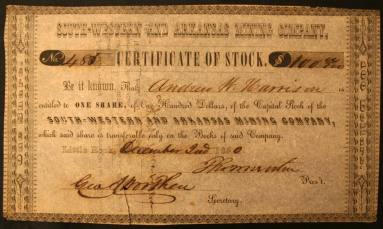 SOUTH-WESTERN AND ARKANSAS MINING COMPANY.
No. 485 CERTIFICATE OF STOCK. $100
Be it known, That Andrew W Harrison is
entitled to ONE SHARE, of One Hundred Dollars, of the Capital Stock of the
SOUTH-WESTERN AND ARKANSAS MINING COMPANY,
which said share is transferable only on the Books of said Company.
Little Rock, December 2nd
Pres't.
Geo A Worthen
Secretary.